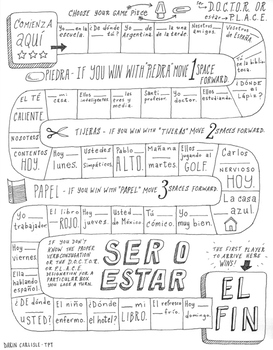 CHOOSE YOUR GAME PIECE
D.O.C.T.O.R. OR
ESTAR → P.L.A.C.E.
COMIENZA
AQUÍ
Yo ___ en la escuela.
¿De dónde ___ tú?
Yo ___ de Argentina.
Nosotros ___ amigos.
Vosotros ___ de España.
PIEDRA - IF YOU WIN WITH "PIEDRA" MOVE 1 SPACE FORWARD.
¿Dónde ___ el lápiz?
EL TÉ ___ CALIENTE
Ellos ___ inteligentes.
Yo ___ profesor.
Ellos ___ estudiando.
TIJERAS - IF YOU WIN WITH "TIJERAS" MOVE 2 SPACES FORWARD.
NOSOTROS ___ CONTENTOS HOY.
Hoy ___ lunes.
Ustedes ___ simpáticos.
Pablo ___ ALTO.
Mañana ___ martes.
Ellos ___ jugando al GOLF.
Carlos ___ NERVIOSO HOY.
La casa ___ azul.
PAPEL - IF YOU WIN WITH "PAPEL" MOVE 3 SPACES FORWARD.
Yo ___ trabajador.
El libro ___ ROJO.
Hoy ___ jueves.
Usted ___ de México.
Tú ___ cómico.
Yo ___ muy bien.
Hoy ___ viernes.
Ella ___ hablando español.
¿De dónde ___ USTED?
El niño ___ enfermo.
¿Dónde ___ el hotel?
___ mi LIBRO.
El refresco ___ frío.
IF YOU DON'T
KNOW THE PROPER
VERB CONJUGATION
OR THE D.O.C.T.O.R.
OR P.L.A.C.E.
DESIGNATION FOR A
PARTICULAR BOX
YOU LOSE A TURN.
SER O
ESTAR
THE FIRST PLAYER
TO ARRIVE HERE
WINS!
EL
FIN
DARIN CARLISLE - TPT